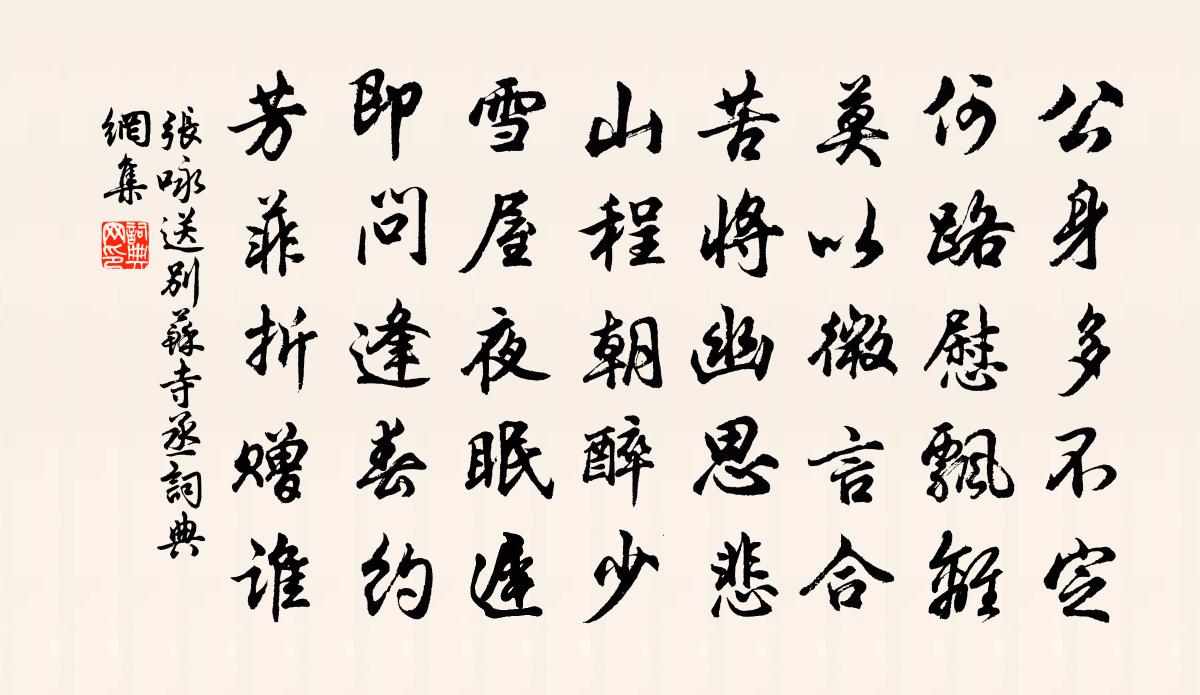 公身多不定
何路慰飄離
莫以微言合
苦將幽思悲
山程朝醉少
雪屋夜眠遲
即問逢春約
芳菲折贈誰
張咏送別蘇寺丞詞典
網集
詞典
网印